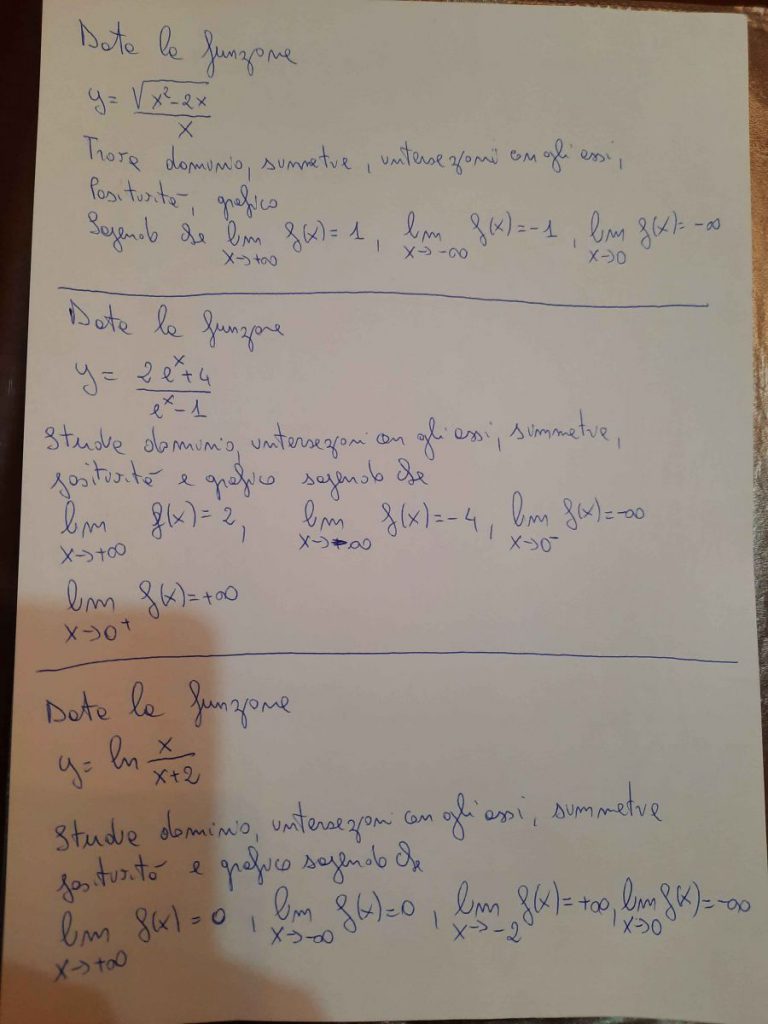 Data la funzione
y = √(x²-2x) / x
Trova dominio, simmetrie, intersezioni con gli assi,
Positività, grafico
Sapendo che lim x→+∞ f(x) = 1, lim x→-∞ f(x) = -1, lim x→0 f(x) = -∞
Data la funzione
y = (2eˣ+4) / (eˣ-1)
Studia dominio, intersezioni con gli assi, simmetrie,
positività e grafico sapendo che
lim x→+∞ f(x) = 2, lim x→-∞ f(x) = -4, lim x→0⁻ f(x) = -∞
lim x→0⁺ f(x) = +∞
Data la funzione
y = ln x/(x+2)
Studia dominio, intersezioni con gli assi, simmetrie
positività e grafico sapendo che
lim x→+∞ f(x) = 0, lim x→-∞ f(x) = 0, lim x→-2 f(x) = +∞, lim x→0 f(x) = -∞